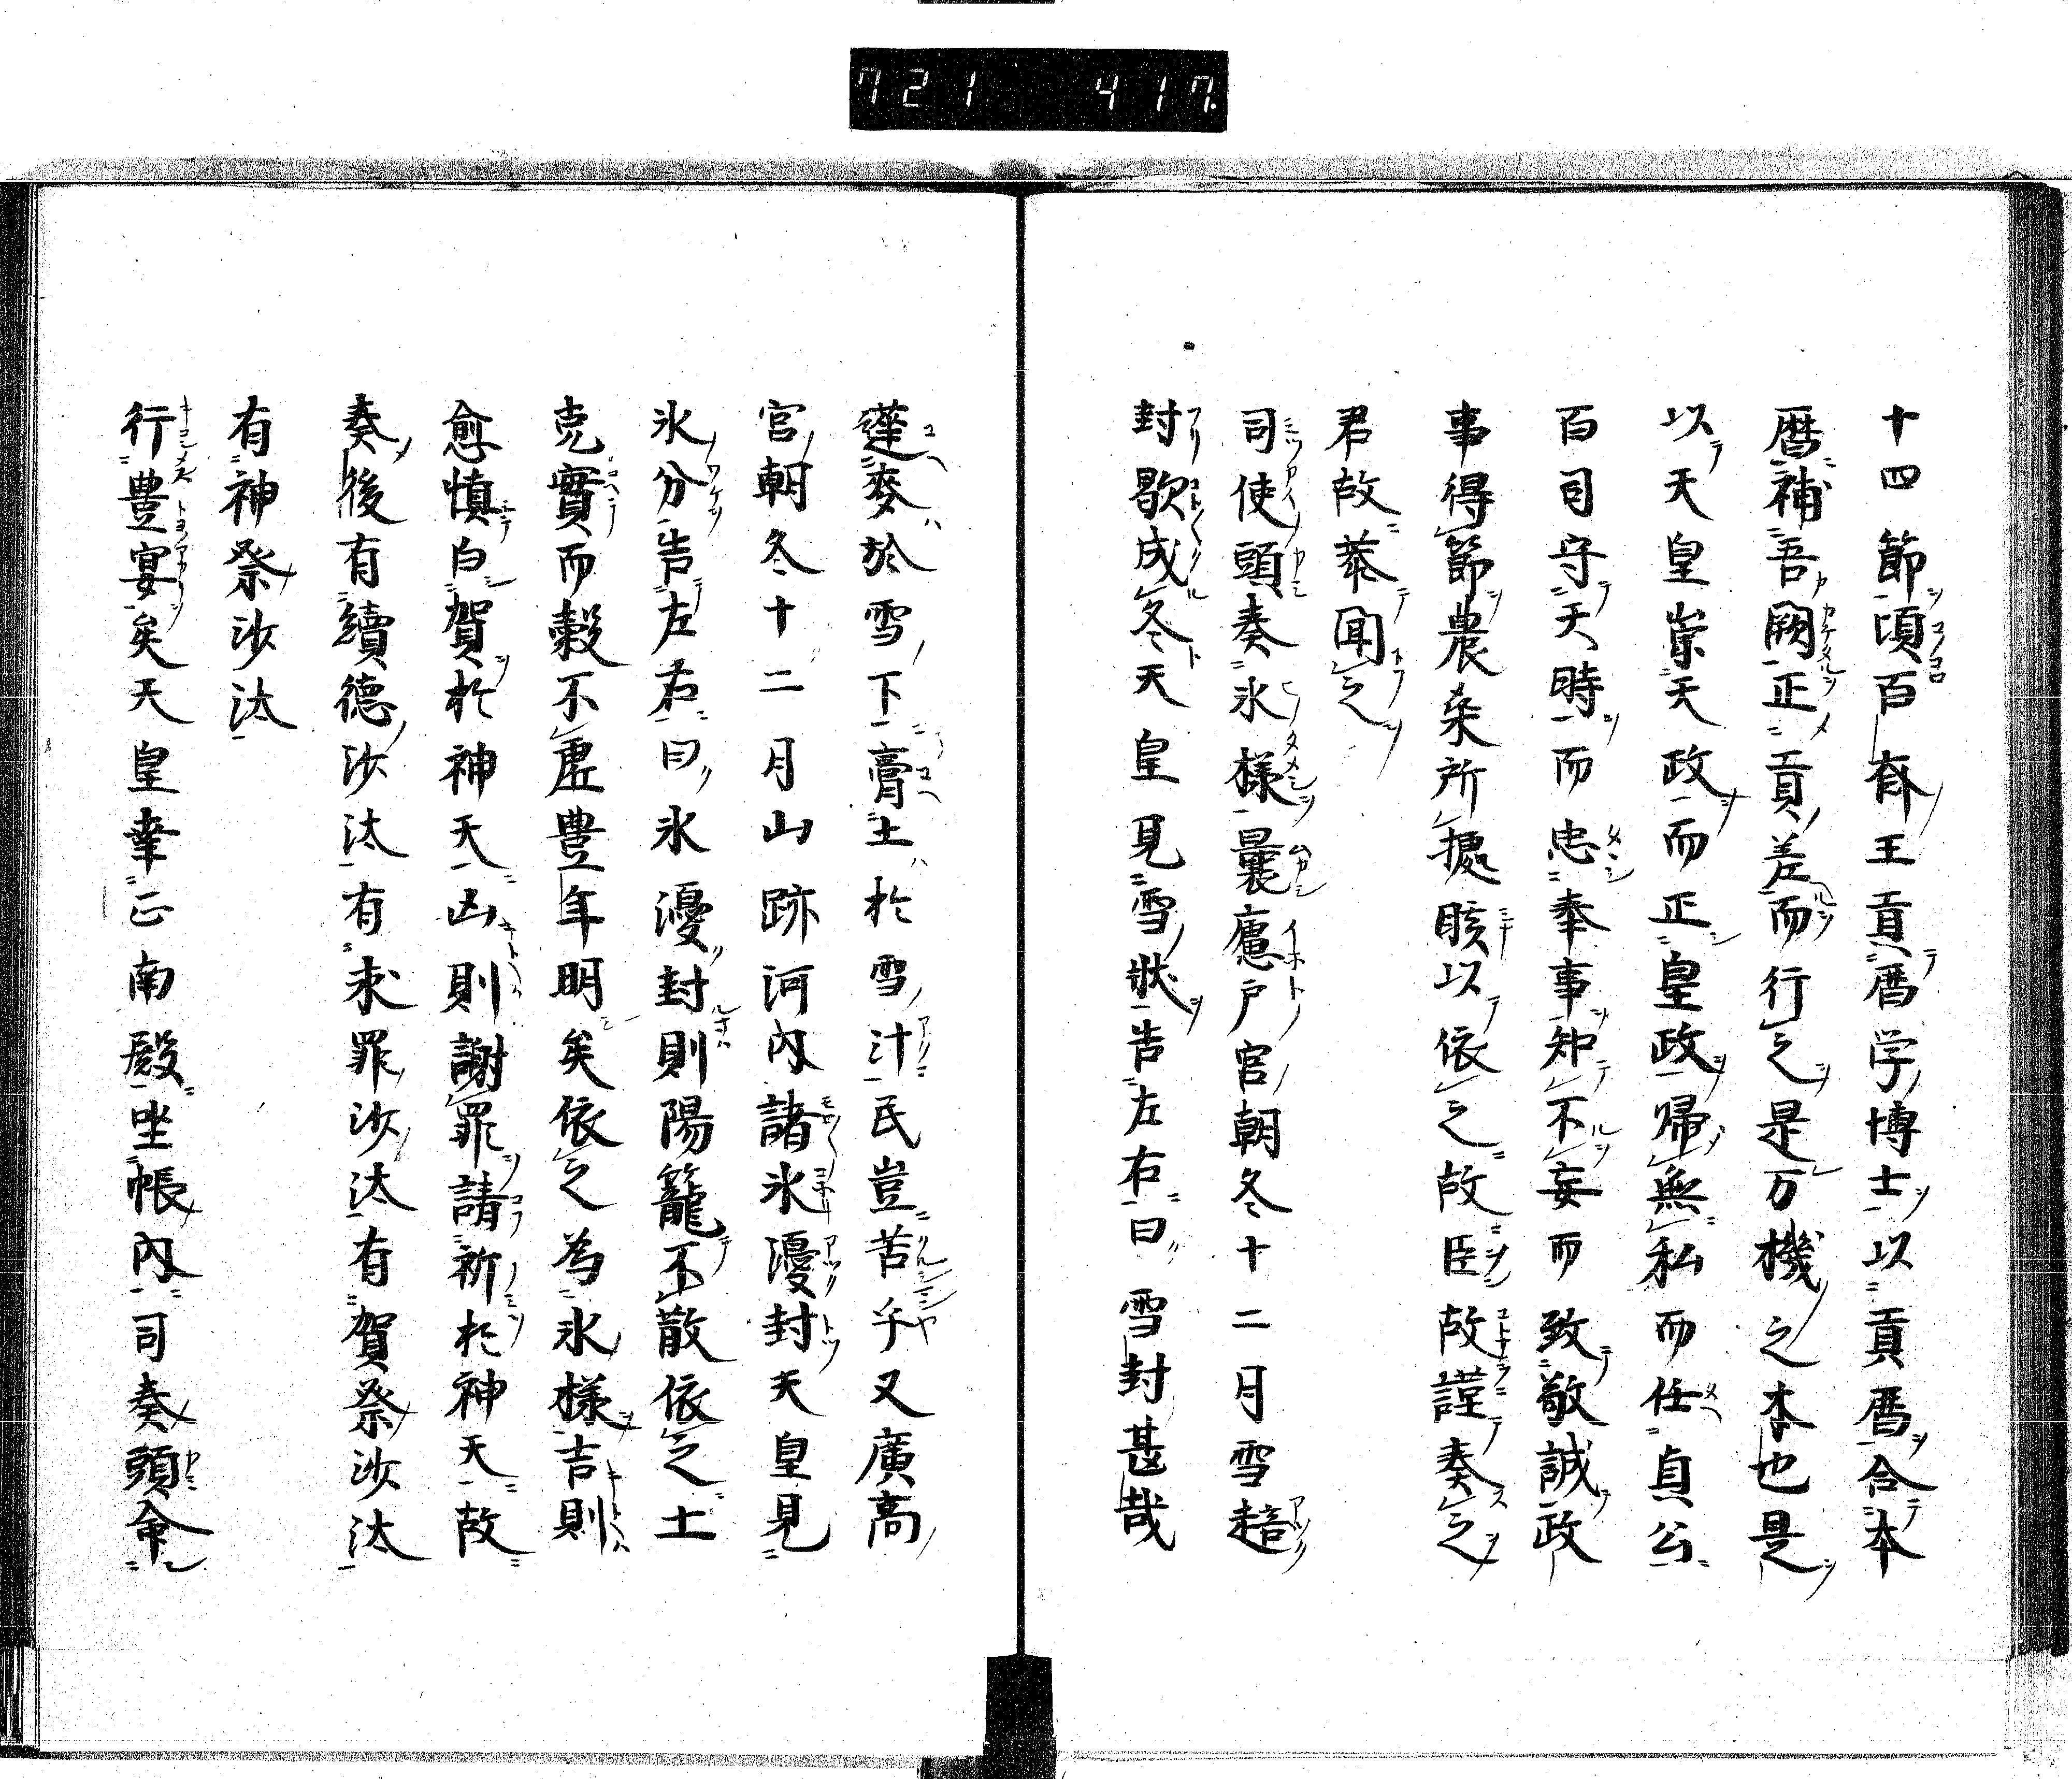 721 417
十四節頃百有王貢暦学博士以貢暦合本
暦補吾闕正貢差而行之是万機之本也是
以天皇崇天政而正皇政帰無私而任貞公
百司守天時而忠奉事知不妄而致敬誠政
事得節農桑所据眩以依之故臣故謹奏之
君故恭聞之
司使頭奏氷様曩廬戸宮朝冬十二月雪
封歇成冬天皇見雪状告左右曰雪封甚哉
麦於雪下膏土於雪汁民豈苦乎又廣高
宮朝冬十二月山跡河内諸氷漫封天皇見
氷分告左右曰氷漫封則陽籠不散依之土
克實而穀不虚豊年明矣依之為氷様吉則
愈慎白賀於神天凶則謝罪請祈於神天故
奏後有續德沙汰有求罪沙汰有賀祭沙汰
有神祭沙汰
行豊宴矣天皇幸正南殿坐帳内司奏頭命